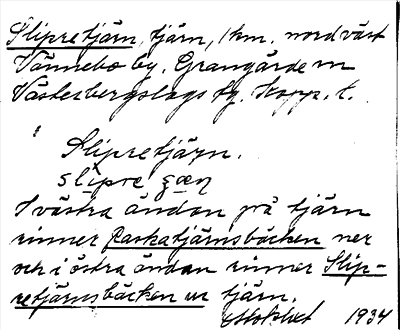 Slipretjärn, tjärn, 1 km. nordväst
Vännebo by, Grangärde sn
Västerbergslags tg. Kopp. l.
Slipretjärn.
slipre
I västra ändan på tjärn
rinner Raskatjärnsbäcken ner
och i östra ändan rinner Slip-
retjärnsbäcken ur tjärn.
1934